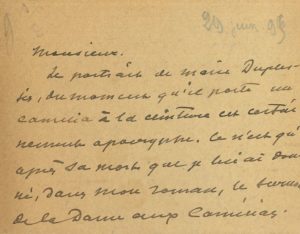 29 juin 95
Monsieur.
Le portrait de Marie Duples-
sis, du moment qu'il porte un
camélia à la ceinture est certai-
nement apocryphe. Ce n'est qu'
après sa mort que je lui ai don-
né, dans mon roman, le surnom
de la Dame aux Camélias.